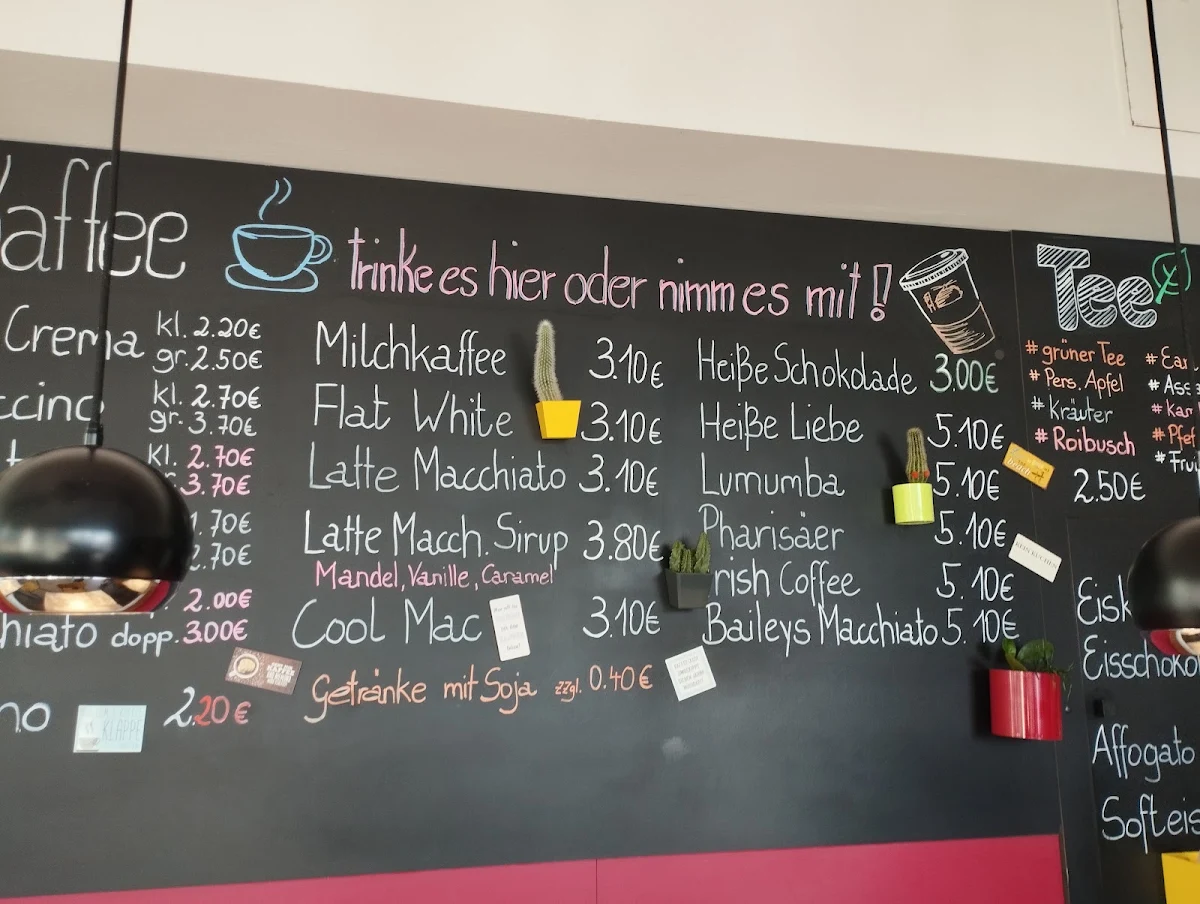 Kaffee
trinke es hier oder nimm es mit!
Tee
Crema kl. 2.20€
gr. 2.50€
kl. 2.70€
gr. 3.70€
kl. 2.70€
3.70€
1.70€
2.70€
2.00€
dopp. 3.00€
2.20€
KLAPPE
Milchkaffee 3.10€
Flat White 3.10€
Latte Macchiato 3.10€
Latte Macch. Sirup 3.80€
Mandel, Vanille, Caramel
Cool Mac 3.10€
Getränke mit Soja zzgl. 0.40€
Heiße Schokolade 3.00€
Heiße Liebe 5.10€
Lumumba 5.10€
Pharisäer 5.10€
Irish Coffee 5.10€
Baileys Macchiato 5.10€
# grüner Tee
# Pers. Apfel
# Kräuter
# Roibusch
2.50€
Affogato
Softeis